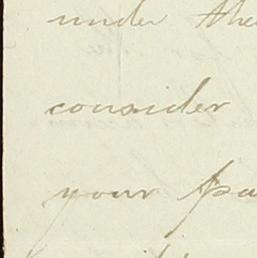 under the
consider
your pa